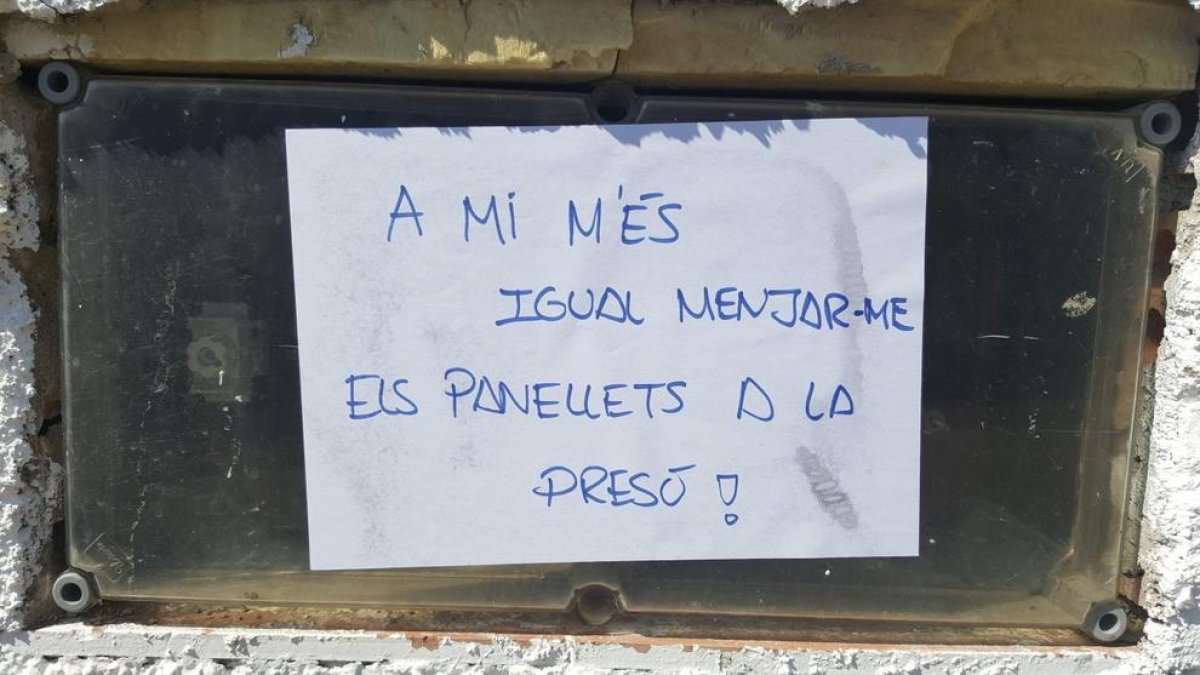 A MI M'ÉS
IGUAL MENJAR-ME
ELS PANELLETS A LA
PRESÓ!